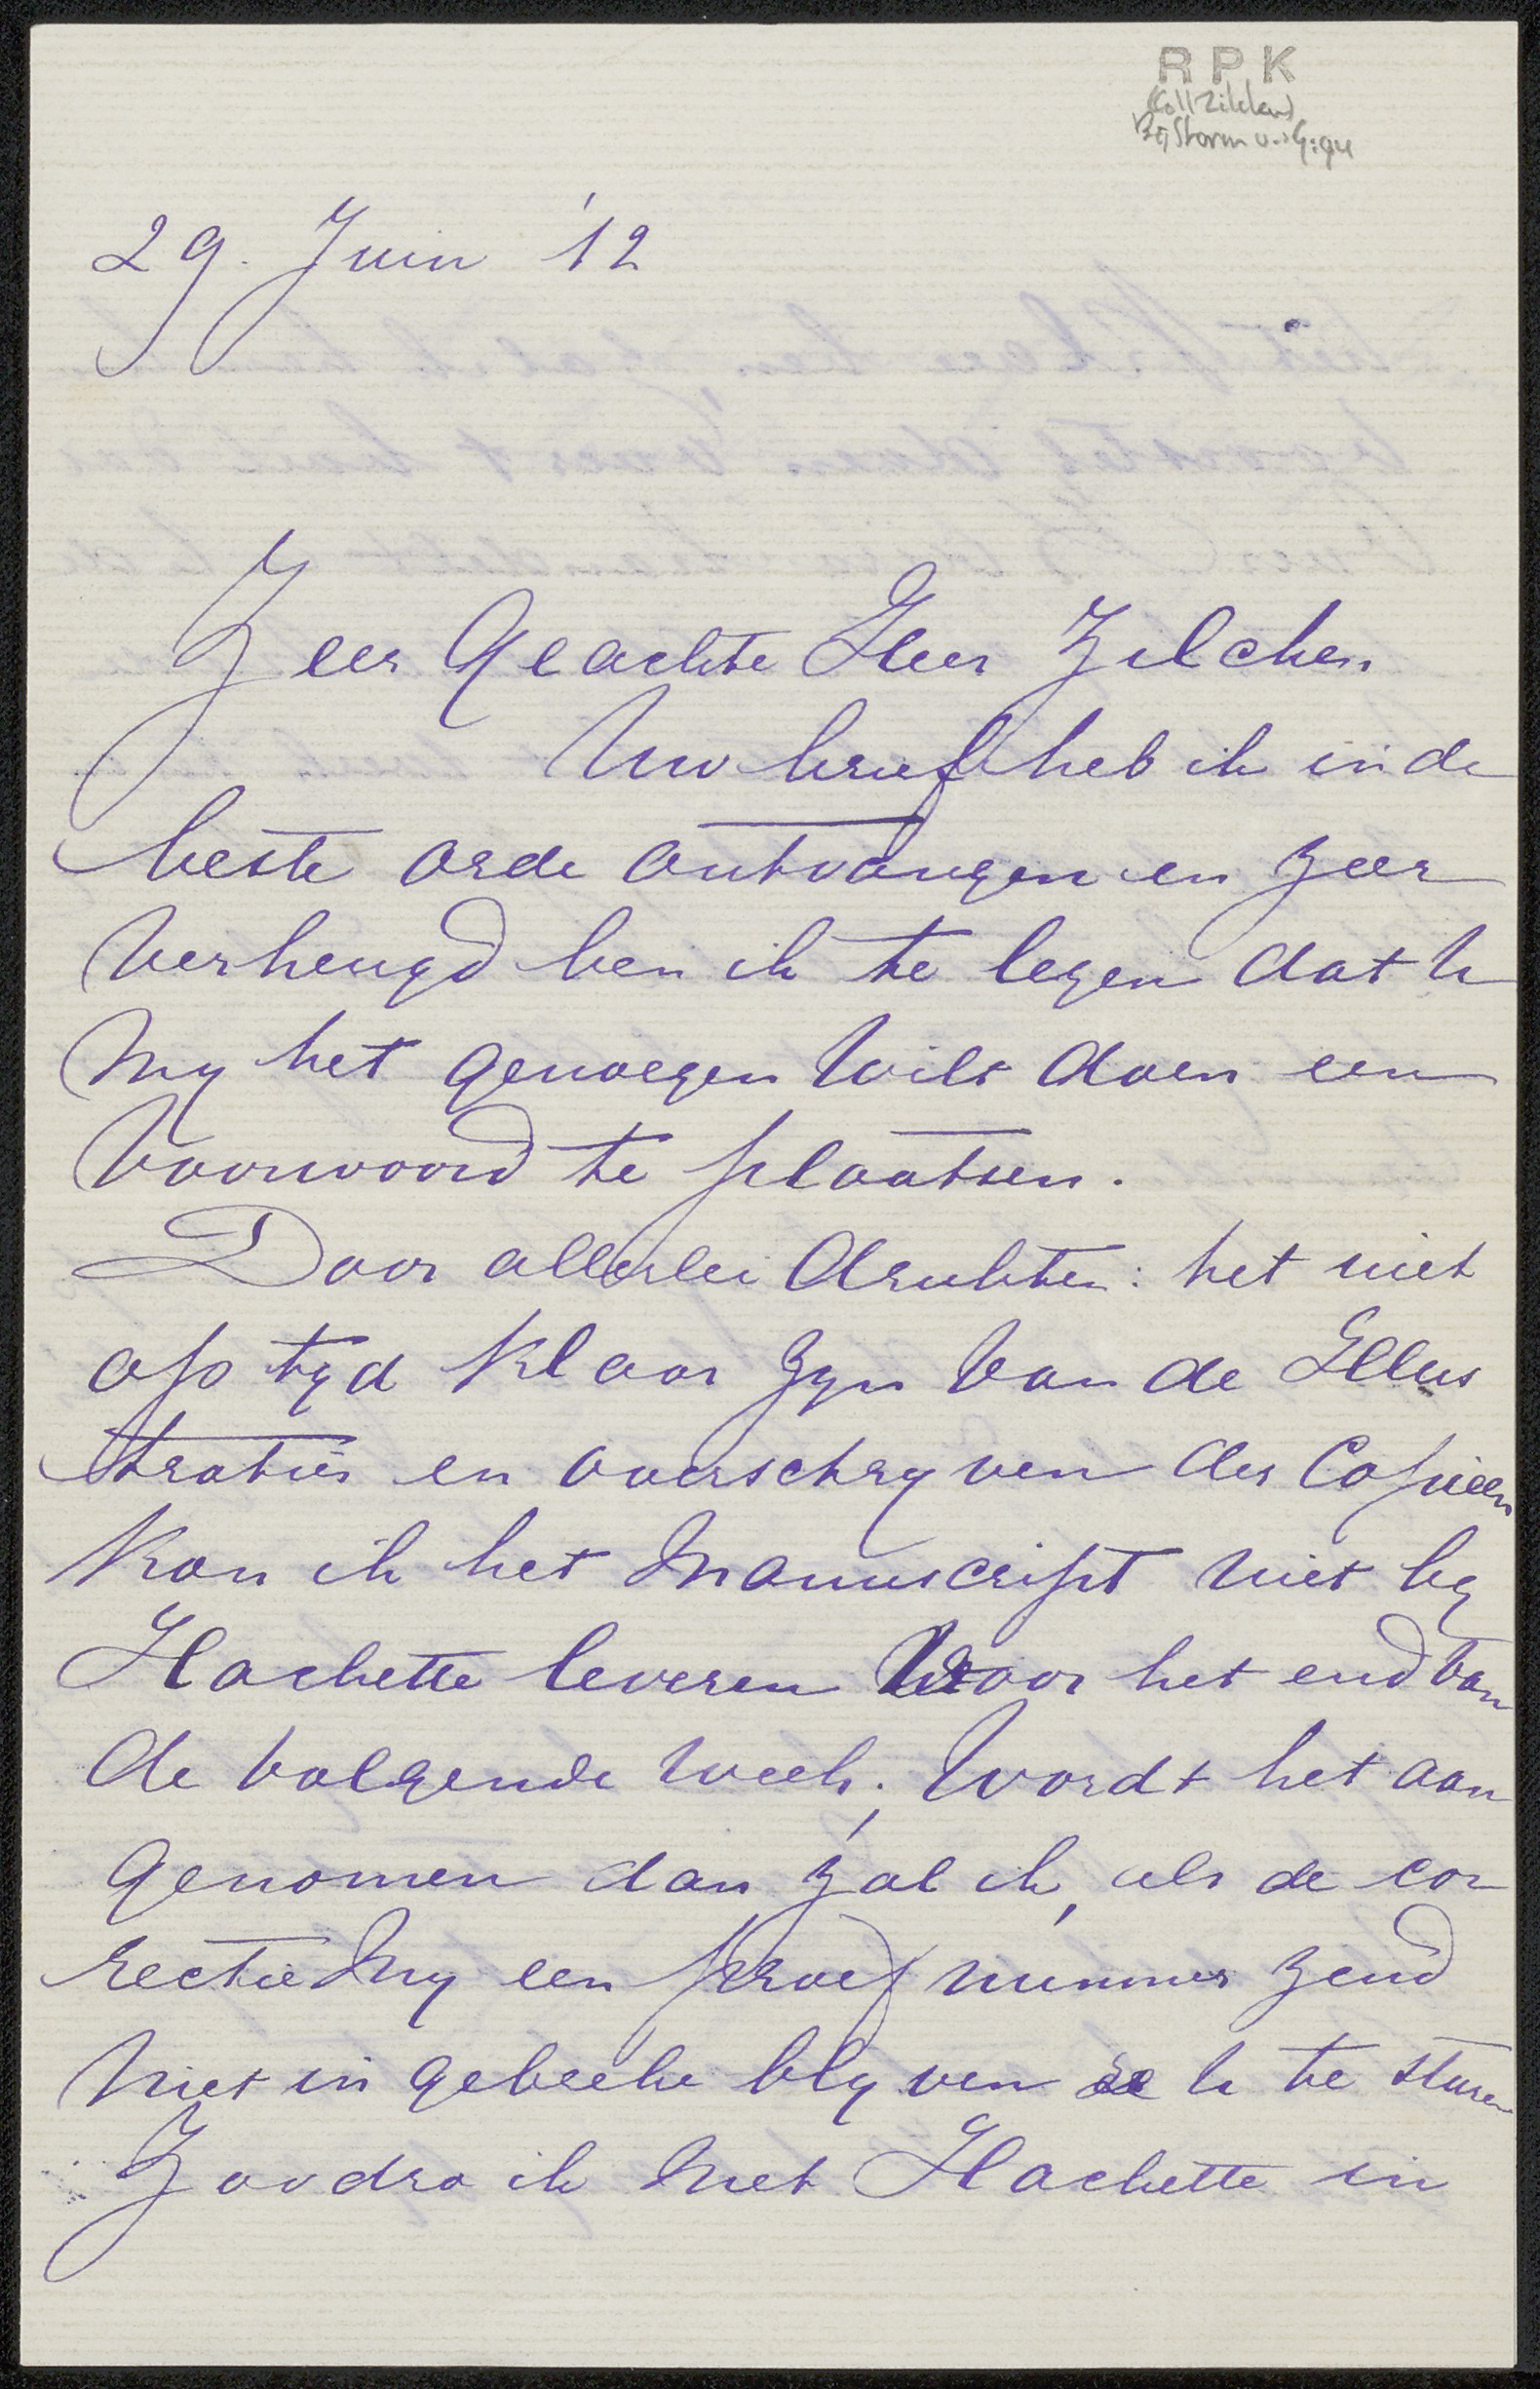 R P K
(Coll Zilcken)
29. Juin '12
Zeer Geachte Heer Zilcken
Uw brief heb ik in de
beste orde ontvangen en zeer
verheugd ben ik te lezen dat U
my het genoegen wilt doen een
voorwoord te plaatsen.
Door allerlei drukten: het niet
op tyd klaar zyn van de Illus
traties en overschryven der Copieen
kon ik het Manuscript niet by
Hachette leveren voor het end van
de volgende week; Wordt het aan
genomen dan zal ik, als de cor
rectie my een proef nummer zend
niet in gebreke blyven U te sturen
Zoodra ik met Hachette in